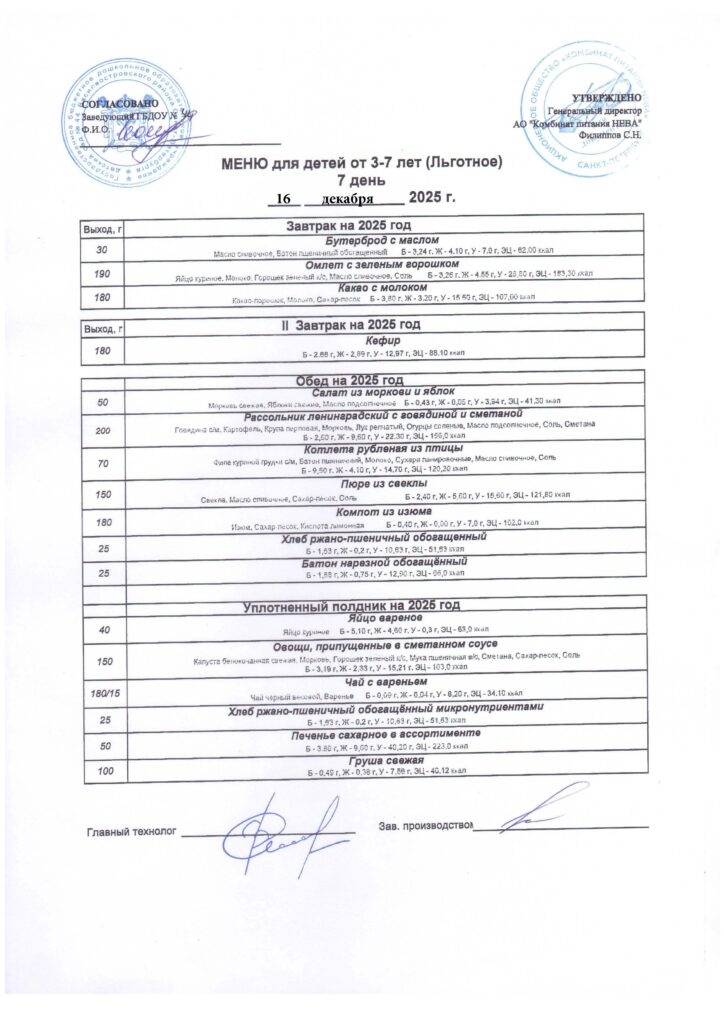 СОГЛАСОВАНО
Заведующий ГБДОУ №
Ф.И.О.
УТВЕРЖДЕНО
Генеральный директор
АО "Комбинат питания НЕВА"
Филиппов С.Н.
МЕНЮ для детей от 3-7 лет (Льготное)
7 день
16 декабря 2025 г.
Выход, г Завтрак на 2025 год
Бутерброд с маслом
30 Масло сливочное, Батон пшеничный обогащенный Б - 3,24 г, Ж - 4,10 г, У - 7,0 г, ЭЦ - 62,00 ккал
Омлет с зеленым горошком
190 Яйцо куриное, Молоко, Горошек зеленый к/с, Масло сливочное, Соль Б - 3,26 г, Ж - 4,55 г, У - ЭЦ - 153,30 ккал
Какао с молоком
180 Какао-порошок, Молоко, Сахар-песок Б - 3,60 г, Ж - 3,20 г, У - ЭЦ - 107,00 ккал
Выход, г II Завтрак на 2025 год
Кефир
180 Б - 2,68 г, Ж - 2,89 г, У - 12,97 г, ЭЦ - 88,10 ккал
Обед на 2025 год
Салат из моркови и яблок
50 Морковь свежая, Яблоки свежие, Масло подсолнечное Б - 0,43 г, Ж - 0,05 г, У - 3,94 г, ЭЦ - 41,30 ккал
Рассольник ленинградский с говядиной и сметаной
200 Говядина с/м, Картофель, Крупа перловая, Морковь, Лук репчатый, Огурцы соленые, Масло подсолнечное, Соль, Сметана
Б - 2,60 г, Ж - 9,60 г, У - 22,30 г, ЭЦ - 156,0 ккал
Котлета рубленая из птицы
70 Филе куриной грудки с/м, Батон пшеничный, Молоко, Сухари панировочные, Масло сливочное, Соль
Б - 9,50 г, Ж - 4,10 г, У - 14,70 г, ЭЦ - 120,20 ккал
Пюре из свеклы
150 Свекла, Масло сливочное, Сахар-песок, Соль Б - 2,40 г, Ж - 5,60 г, У - 15,60 г, ЭЦ - 121,80 ккал
Компот из изюма
180 Изюм, Сахар-песок, Кислота лимонная Б - 0,40 г, Ж - 0,00 г, У - 7,0 г, ЭЦ - 102,0 ккал
Хлеб ржано-пшеничный обогащенный
25 Б - 1,63 г, Ж - 0,2 г, У - 10,63 г, ЭЦ - 51,63 ккал
Батон нарезной обогащённый
25 Б - 1,88 г, Ж - 0,75 г, У - 12,90 г, ЭЦ - 66,0 ккал
Уплотненный полдник на 2025 год
Яйцо вареное
40 Яйцо куриное Б - 5,10 г, Ж - 4,60 г, У - 0,3 г, ЭЦ - 63,0 ккал
Овощи, припущенные в сметанном соусе
150 Капуста белокочанная свежая, Морковь, Горошек зеленый к/с, Мука пшеничная в/с, Сметана, Сахар-песок, Соль
Б - 3,19 г, Ж - 2,33 г, У - 15,21 г, ЭЦ - 103,0 ккал
Чай с вареньем
180/15 Чай черный весовой, Варенье Б - 0,09 г, Ж - 0,04 г, У - 8,20 г, ЭЦ - 34,10 ккал
Хлеб ржано-пшеничный обогащённый микронутриентами
25 Б - 1,63 г, Ж - 0,2 г, У - 10,63 г, ЭЦ - 51,63 ккал
Печенье сахарное в ассортименте
50 Б - 3,80 г, Ж - 9,00 г, У - 40,20 г, ЭЦ - 223,0 ккал
Груша свежая
100 Б - 0,49 г, Ж - 0,38 г, У - 7,56 г, ЭЦ - 40,12 ккал
Главный технолог
Зав. производством